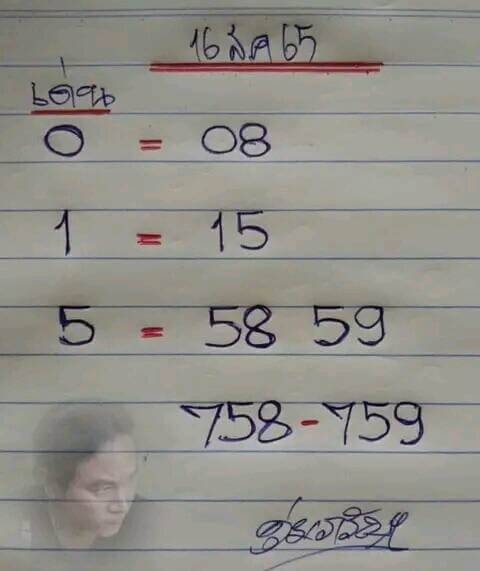 16 ส.ค 65
เด่น
0 = 08
1 = 15
5 = 58 59
758 - 759